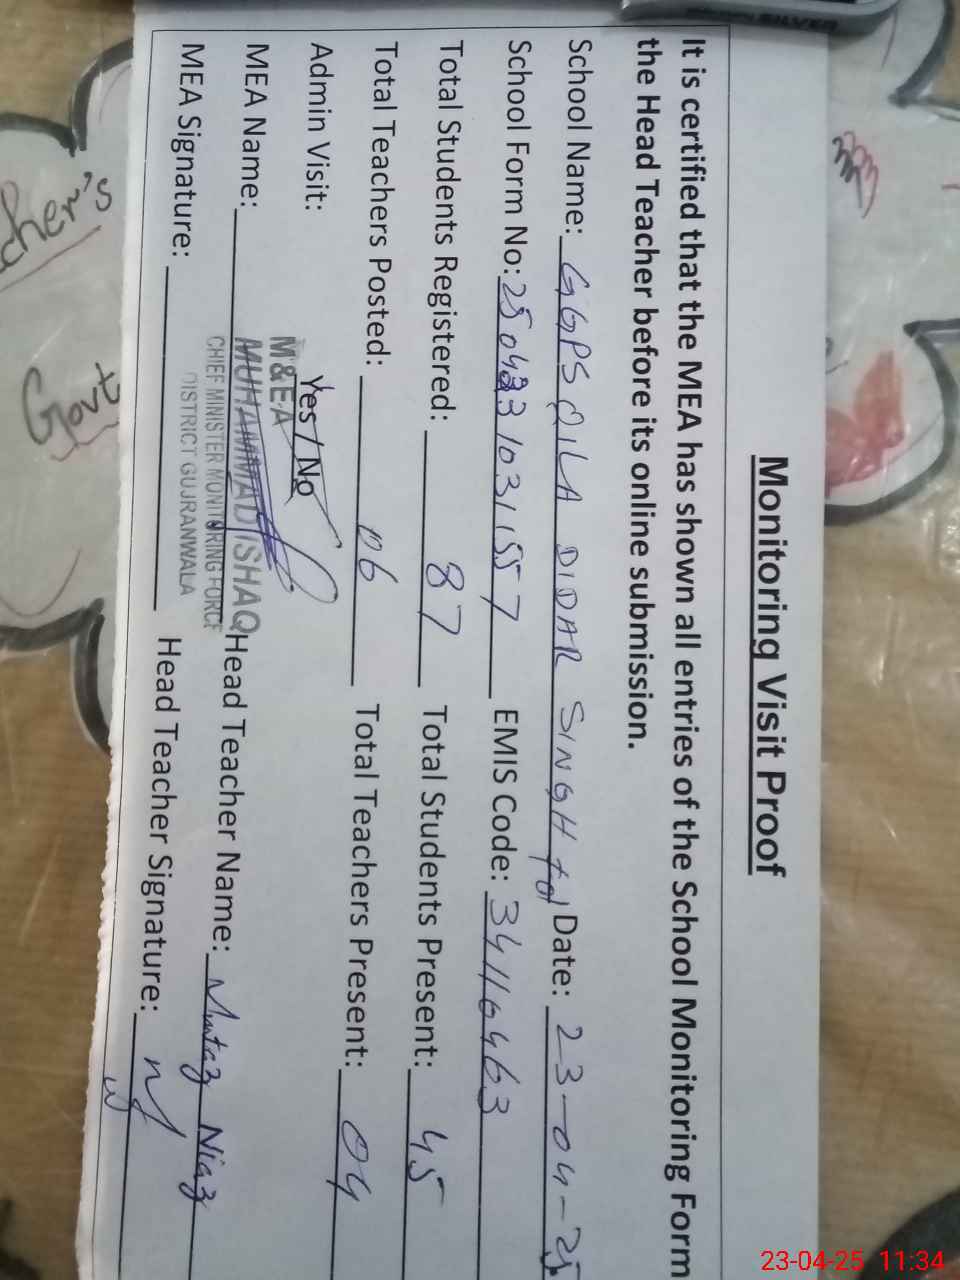 Monitoring Visit Proof
It is certified that the MEA has shown all entries of the School Monitoring Form
the Head Teacher before its online submission.
School Name: GGPS QILA DIDAR SINGH Date: 23-04-25
School Form No: EMIS Code: 34116463
Total Students Registered: 87 Total Students Present: 45
Total Teachers Posted: 06 Total Teachers Present: 04
Admin Visit: Yes / No
M&EA
MEA Name: MUHAMMAD ISHAQ Head Teacher Name: Niaz
CHIEF MINISTER MONITORING FORCE
MEA Signature: Head Teacher Signature:
DISTRICT GUJRANWALA
cher's
Govt
23-04-25 11:34